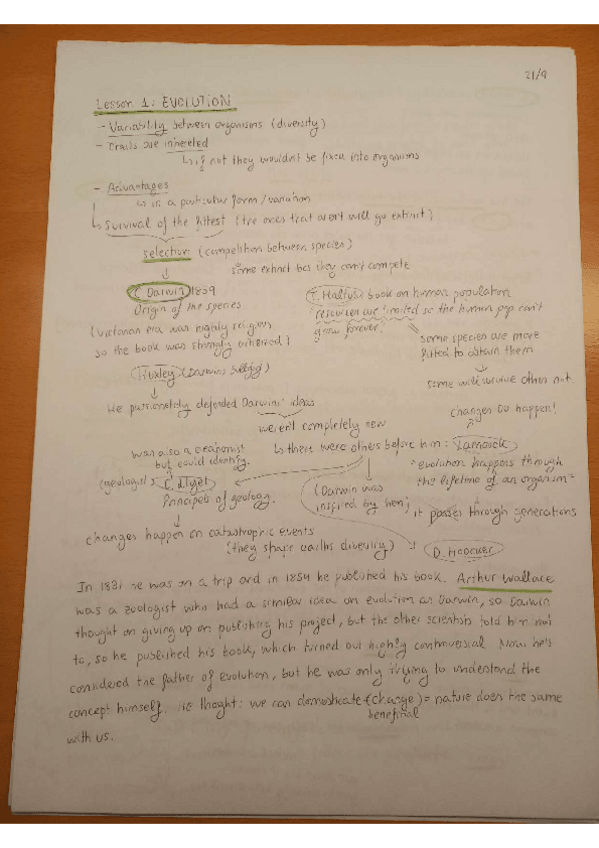 21/9
Lesson 1: EVOLUTION
- Variability between organisms (diversity)
- traits are inhereted
↳ if not they wouldn't be fixed into organisms
- Advantages
↳ in a particular form/variation
↳ Survival of the fittest (the ones that aren't will go extinct)
selection (competition between species)
↓ some extinct bcs they can't compete
Darwin 1859
Origin of the species
(Victorian era was highly religious
so the book was strongly criticised)
T. Maltus: book on human population
"resources are limited so the human pop can't
grow forever."
some species are more
fitted to obtain them
↓
some will survive others not
Huxley (Darwins bulldog)
↓
He passionately defended Darwins' ideas
weren't completely new
↳ there were others before him: Lamarck
changes DO happen!
"evolution happens through
the lifetime of an organism"
it passes through generations
was also a
but could identify
(geologist) C. Lyell
Principels of geology
↓
changes happen on catastrophic events
(they shape earths diversity)
(Darwin was
inspired by him)
D. Hoocker
In 1831 he was on a trip and in 1859 he published his book. Arthur Wallace
was a zoologist who had a similar idea on evolution as Darwin, so Darwin
thought on giving up on publishing his project, but the other scientists told him not
to, so he published his book, which turned out highly controversial. Now he's
considered the father of evolution, but he was only trying to understand the
concept himself. He thoght: we can domesticate (change) = nature does the same
benefinal
with us.